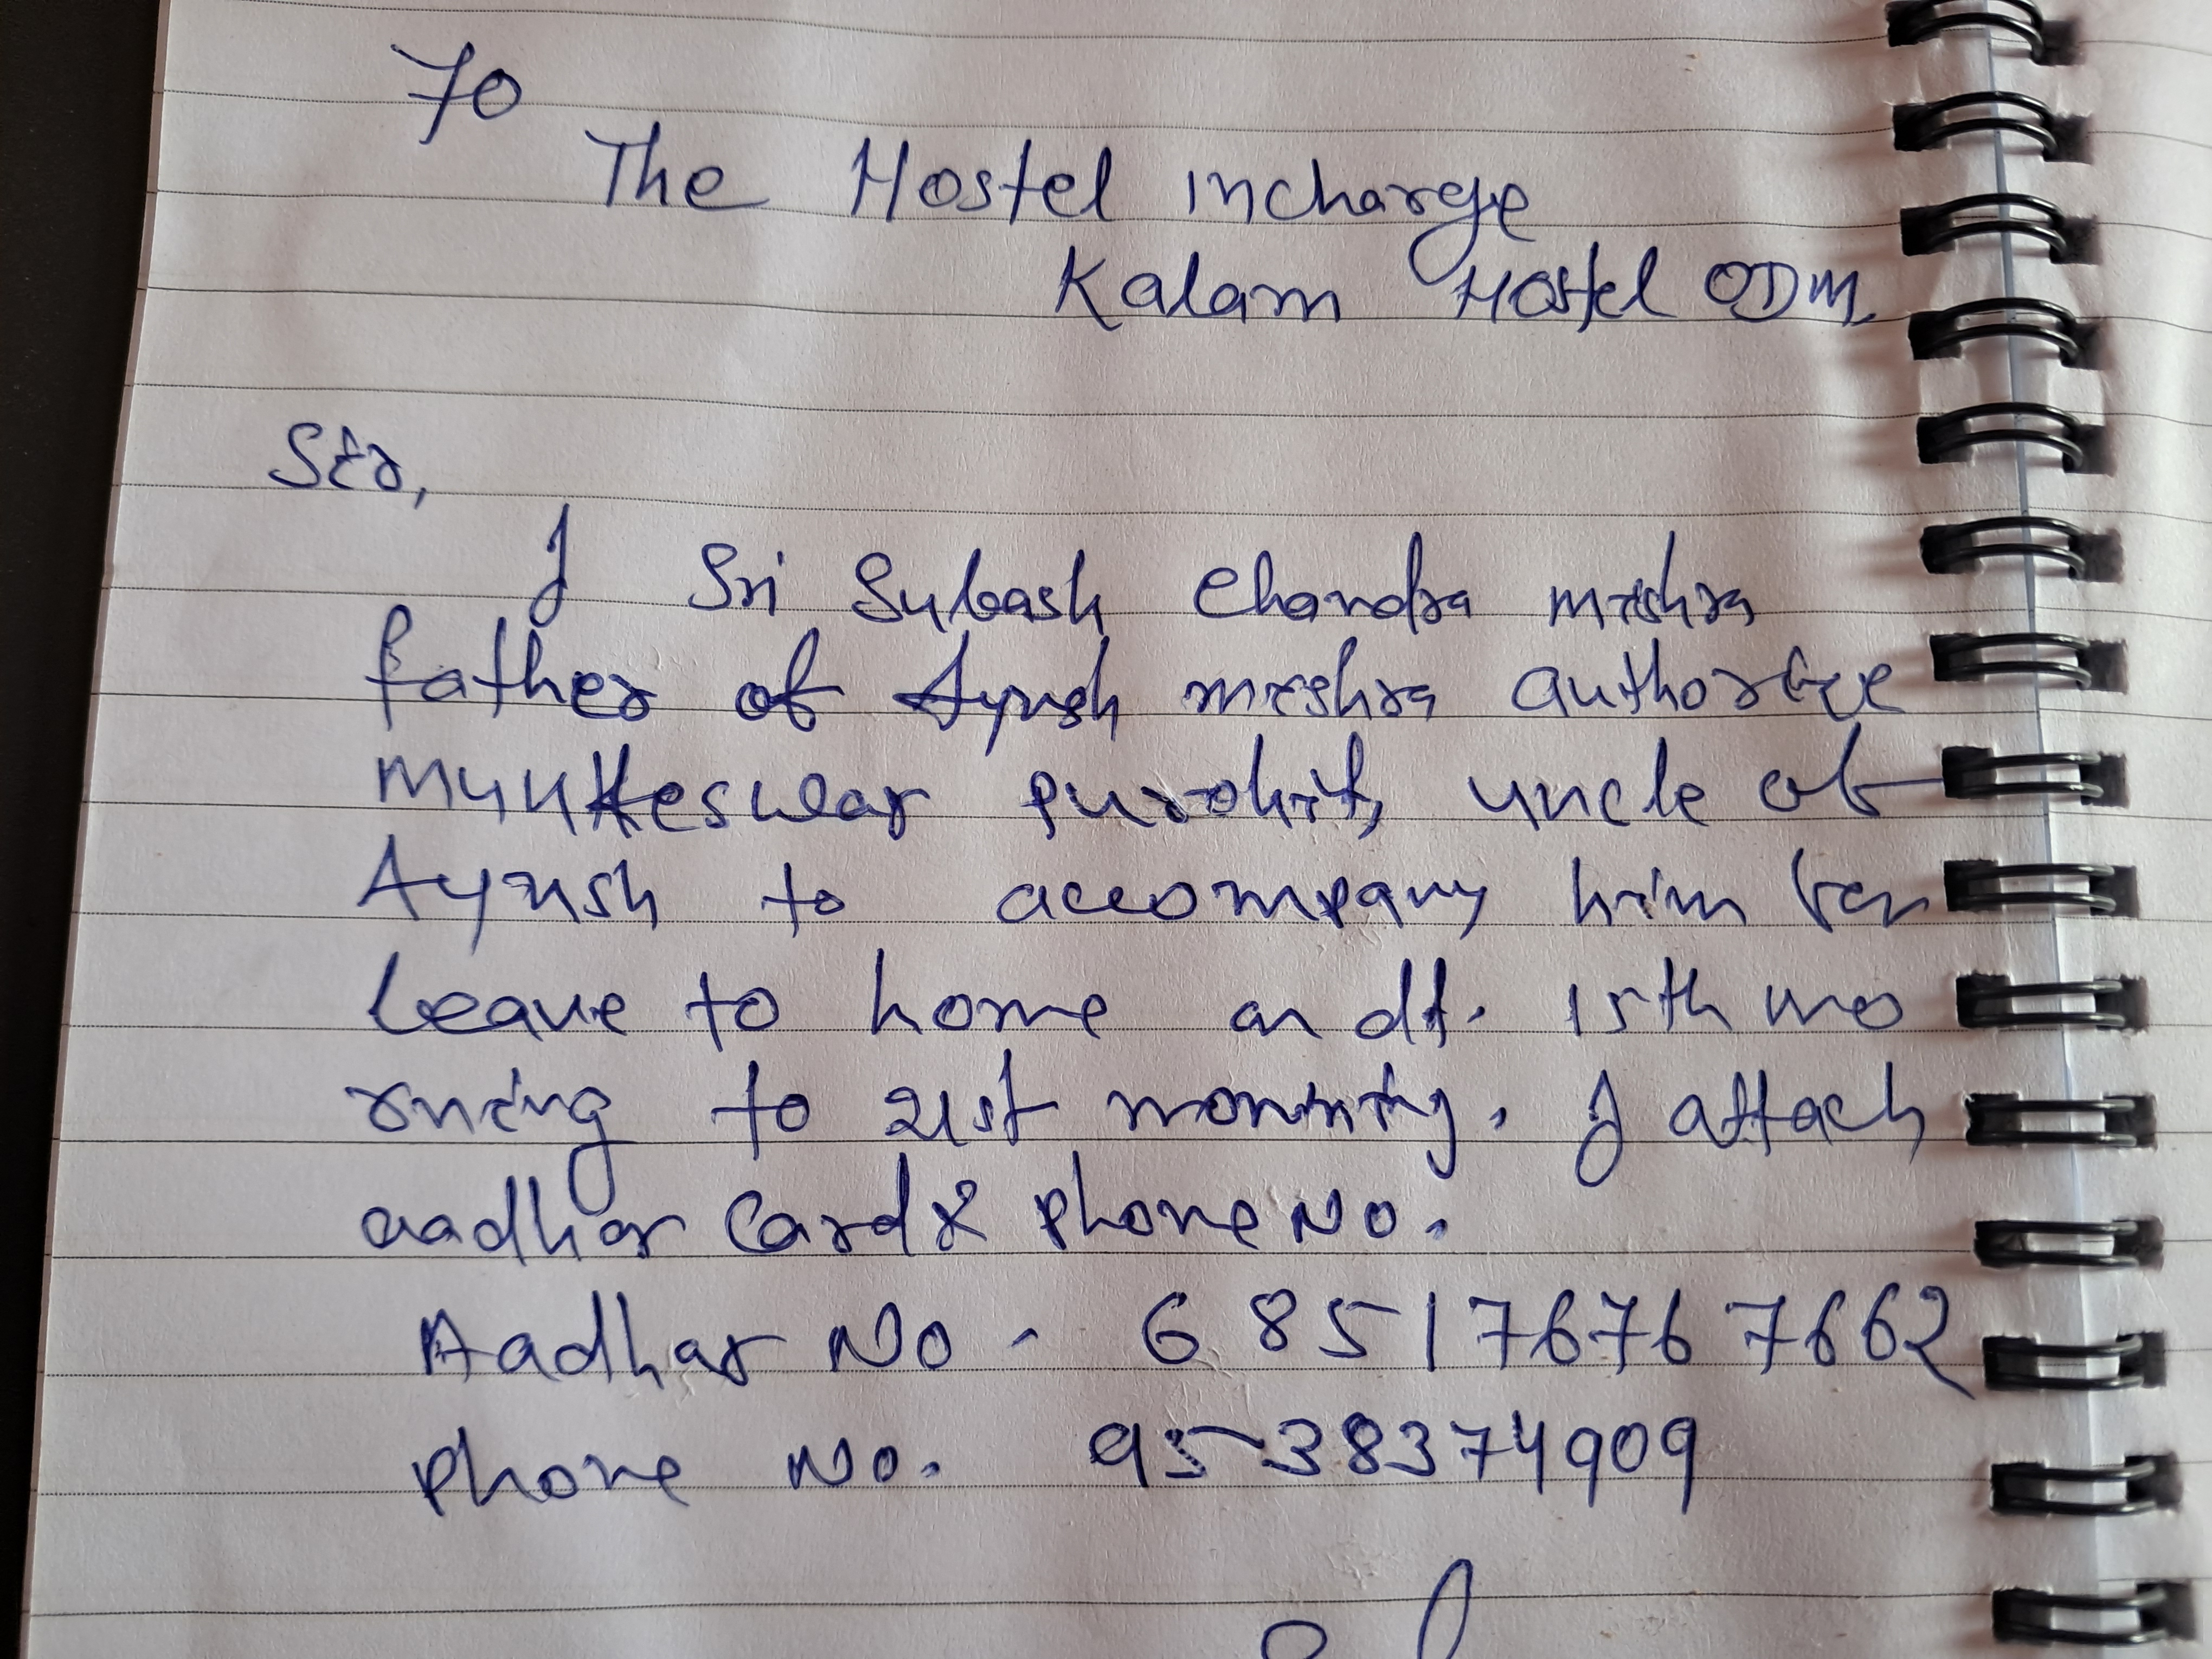 To
The Hostel incharge
Kalam Hostel ODM.
Sir,
I Sri Subash Chandra mishra
father of Ayush mishra authorize
Munkteswar purohit, uncle of
Ayush to accompany him for
leave to home on dt. 15th mo
rning to 21st morning. I attach
aadhar Card & phone No.
Aadhar No - 685176767662
phone No. 9538374909